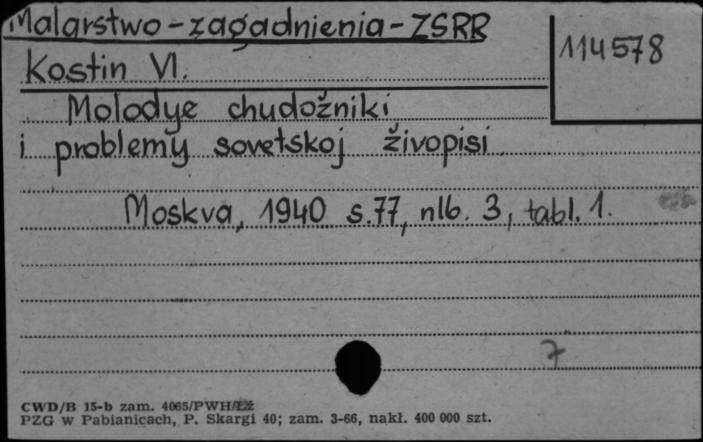 Malarstwo - zagadnienia - ZSRR
114578
Kostin Vl.
Molodye chudožniki
i problemy sovetskoj živopisi
Moskva, 1940 s. 77, nlb. 3, tabl. 1.
7
CWD/B 15-b zam. 4065/PWH/Łź
PZG w Pabianicach, P. Skargi 40; zam. 3-66, nakł. 400 000 szt.